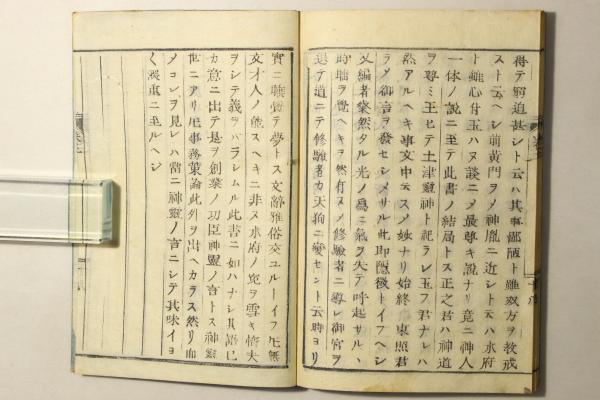 得テ窮迫甚シト云ハ其事鄙陋ト雖双方ヲ教戒
スト云ヘシ前黄門ヲメ神胤ニ近シト云ハ水府
ト雖心付玉ハヌ談ニメ最尊キ説ナリ竟ニ神人
一体ノ説ニ至テ此書ノ結局トス正之君ハ神道
ヲ尊ミ王ヒテ土津靈神ト祀ラレ玉フ君ナレハ
然アルヘキ事文中云スノ妙ナリ始終
東照君
ラメ御言ヲ發セシメサル此即隱微トイフヘシ
又編者榮然タル光ノ為ニ氣ヲ失テ呼起サル
時聡ヲ覺ヘキヲ然有スメ修驗者ニ導レ御宮ヲ
退テ道ニテ修驗者カ天狗ニ變セシト云時ヨリ
實ニ
夢トス文辭雅俗交ユルーイフ𪜈無
文才人ノ能スヘキニ非ス水府ノ寃ヲ雪キ
夫
ヲシテ義ヲハラレムル此書ニ如ハナシ其論已
カ意ニ出テ是ヲ創業ノ功臣神靈ノ言トス神靈
世ニアリ𪜈事務策論此外ヲ出ヘカラス然リ而
メコレヲ見レハ當ニ神靈ノ言ニシテ其味イヨ
く深重ニ至ルヘシ